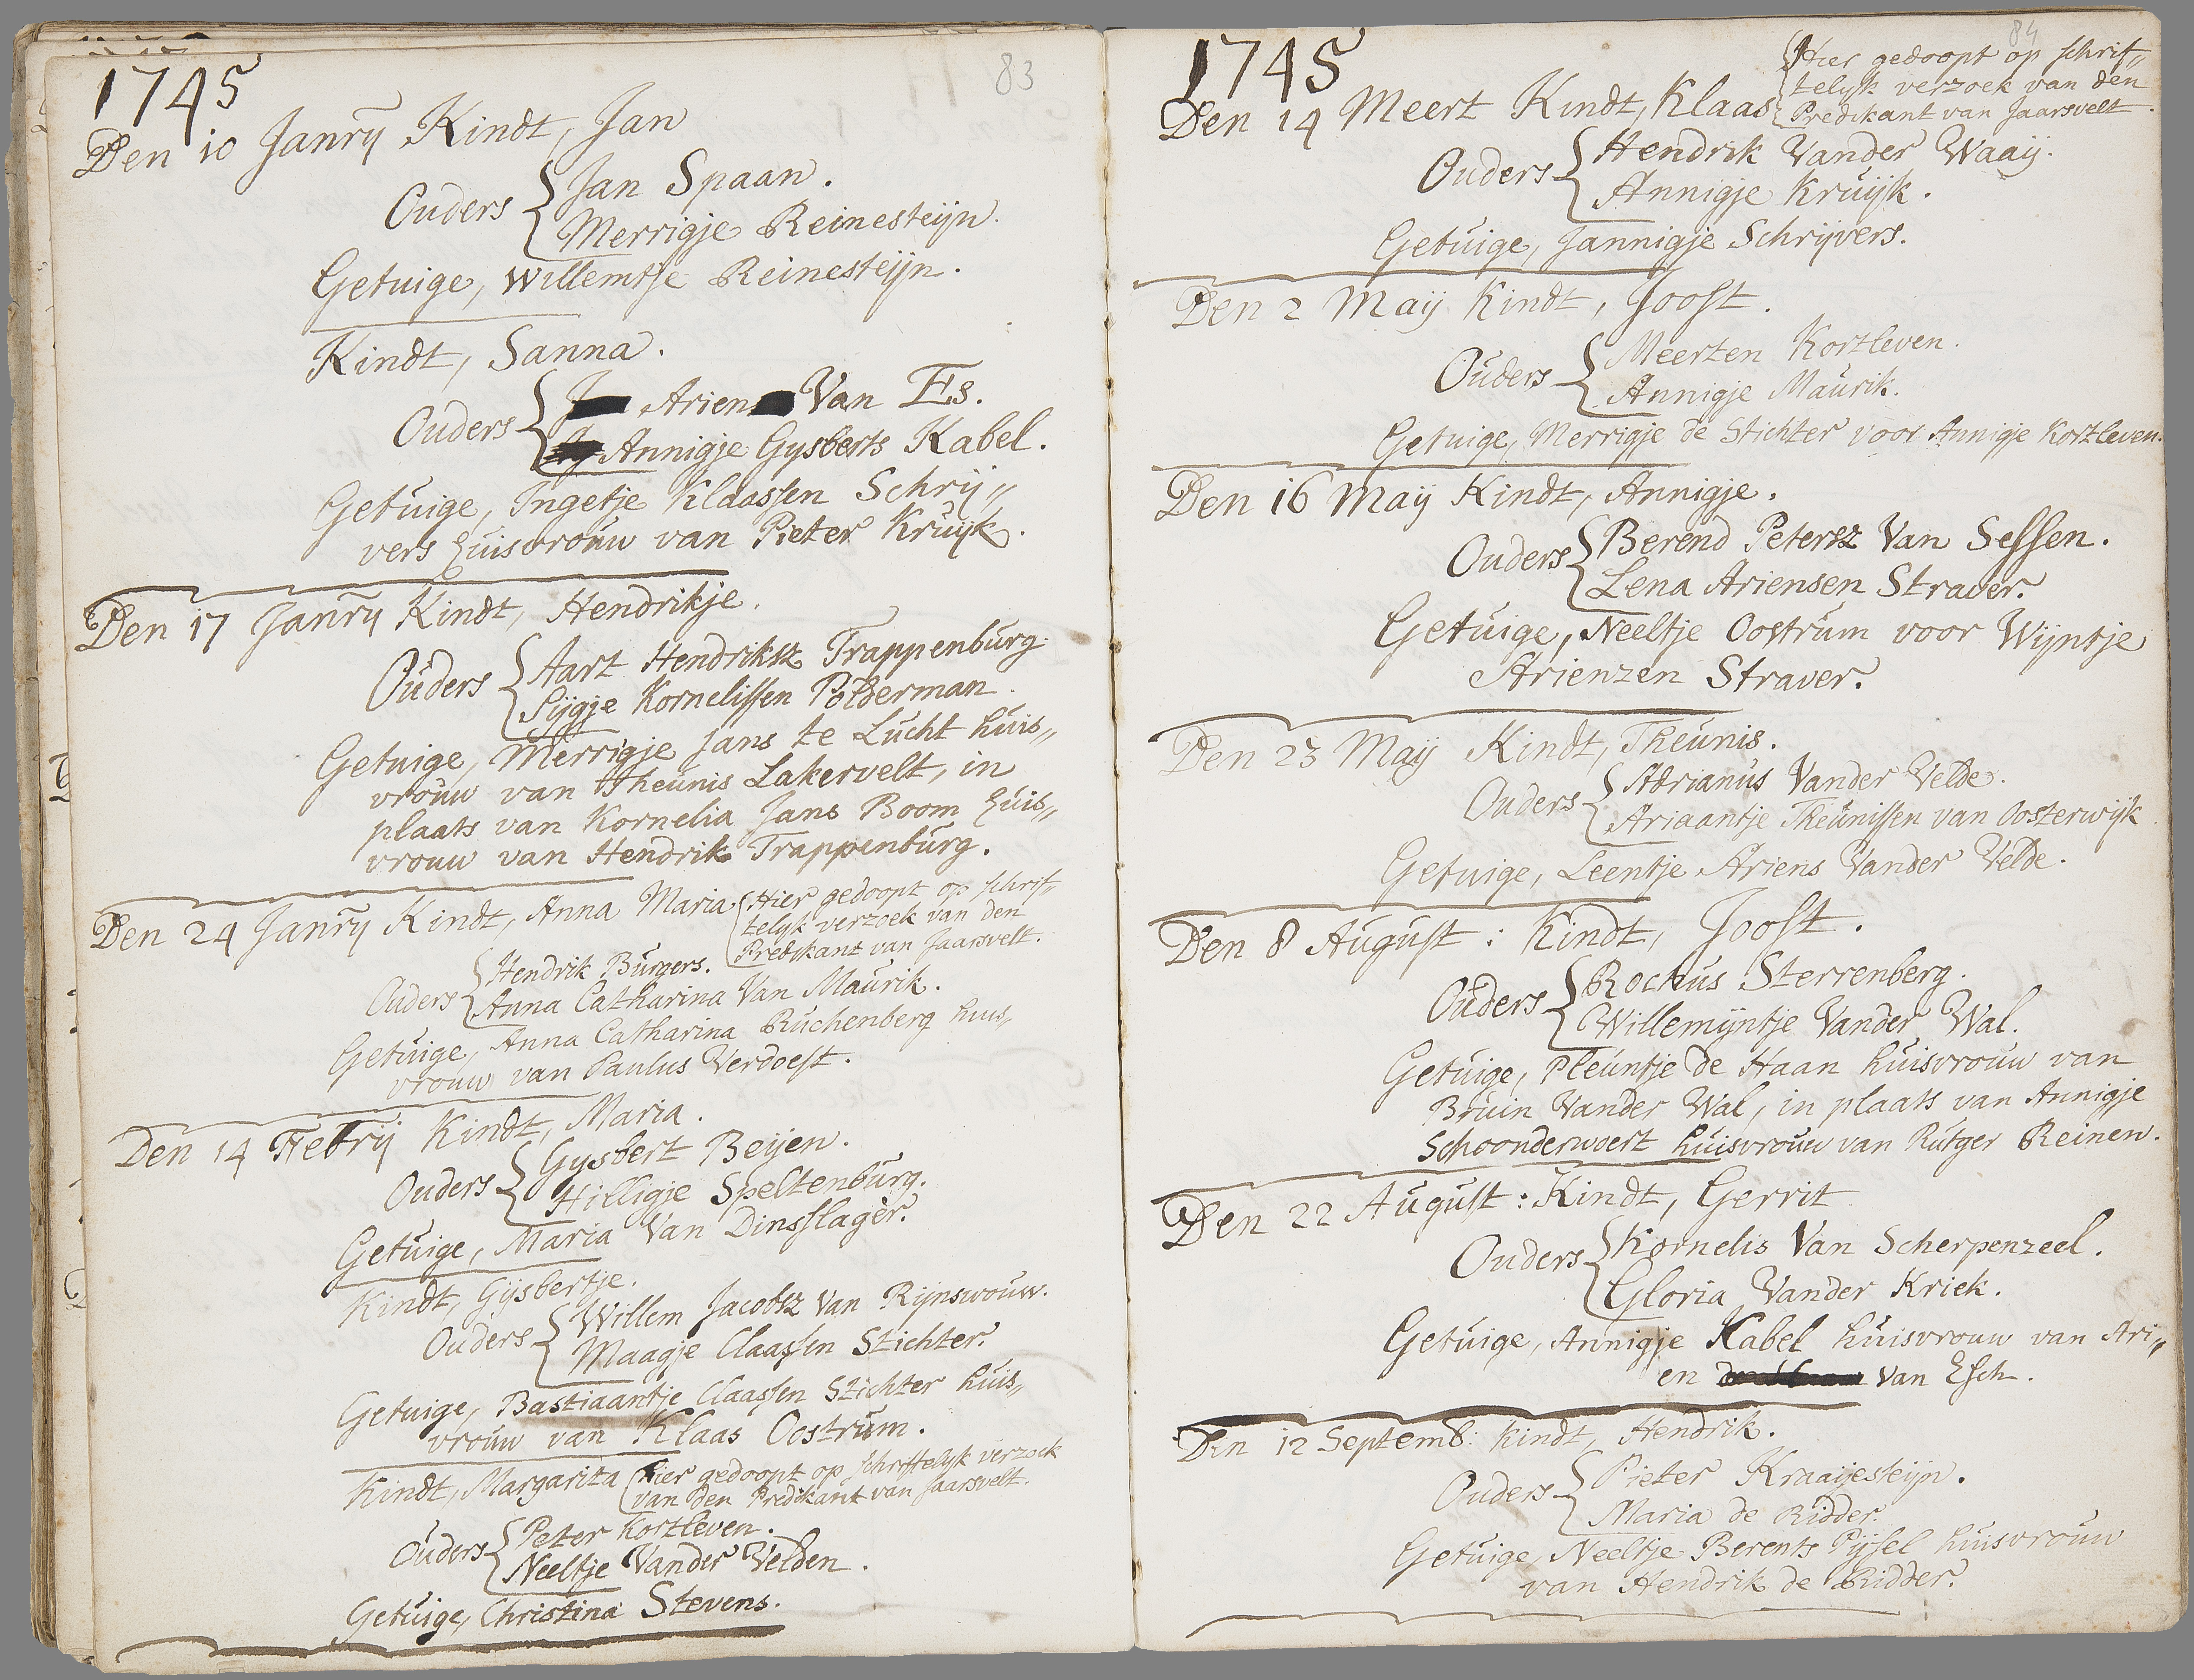 83
1745
Den 10 Janry Kindt, Jan
Ouders { Jan Spaan.
Merrigje Reinesteijn.
Getuige, Willemtje Reinesteijn.
Kindt, Sanna.
Ouders { Arien Van Es.
Annigje Gysberts Kabel.
Getuige, Ingetje Klaassen Schrij„
vers huisvrouw van Pieter Kruijk.
Den 17 Janry Kindt, Hendrikje.
Ouders { Aart Hendriksz Trappenburg.
Sijgje Kornelissen Polderman.
Getuige, Merrigje Jans te Lucht huis„
vrouw van Theunis Lakervelt, in
plaats van Kornelia Jans Boom huis„
vrouw van Hendrik Trappenburg.
Den 24 Janry Kindt, Anna Maria { Hier gedoopt op schrif„
telyk verzoek van den
Predikant van Jaarsvelt.
Ouders { Hendrik Burgers.
Anna Catharina Van Maurik.
Getuige, Anna Catharina Ruchenberg huis„
vrouw van Paulus Verdoest.
Den 14 Febrij Kindt, Maria.
Ouders { Gysbert Beijen.
Hilligje Speltenburg.
Getuige, Maria Van Dinsslager.
Kindt, Gijsbertje.
Ouders { Willem Jacobsz Van Rijnswouw.
Maagje Claassen Stichter.
Getuige, Bastiaantje Claassen Stichter huis„
vrouw van Klaas Oostrum.
Kindt, Margarita { hier gedoopt op schriftelyk verzoek
van den Predikant van Jaarsvelt.
Ouders { Peter Kortleven.
Neeltje Vander Velden.
Getuige, Christina Stevens.
84
1745
Den 14 Meert Kindt, Klaas { Hier gedoopt op schrif„
telyk verzoek van den
Predikant van Jaarsvelt.
Ouders { Hendrik Vander Waaij.
Annigje Kruijk.
Getuige, Jannigje Schrijvers.
Den 2 Maij Kindt, Joost.
Ouders { Meerten Kortleven.
Annigje Maurik.
Getuige, Merrigje de Stichter voor Annigje Kortleven.
Den 16 Maij Kindt, Annigje.
Ouders { Berend Petersz Van Sessen.
Lena Ariensen Straver.
Getuige, Neeltje Oostrum voor Wijntje
Arienzen Straver.
Den 23 Maij Kindt, Theunis.
Ouders { Adrianus Vander Velde.
Ariaantje Theunissen van Oosterwijk
Getuige, Leentje Ariens Vander Velde.
Den 8 August: Kindt, Joost.
Ouders { Rochus Sterrenberg.
Willemijntje Vander Wal.
Getuige, Pleuntje de Haan huisvrouw van
Bruin Vander Wal, in plaats van Annigje
Schoonderwoert huisvrouw van Rutger Reinen.
Den 22 August: Kindt, Gerrit
Ouders { Kornelis Van Scherpenzeel.
Gloria Vander Kriek.
Getuige, Annigje Kabel huisvrouw van Ari„
en van Esch.
Den 12 Septemb: Kindt, Hendrik.
Ouders { Pieter Kraaijesteijn.
Maria de Ridder.
Getuige, Neeltje Berents Pijsel huisvrouw
van Hendrik de Ridder.